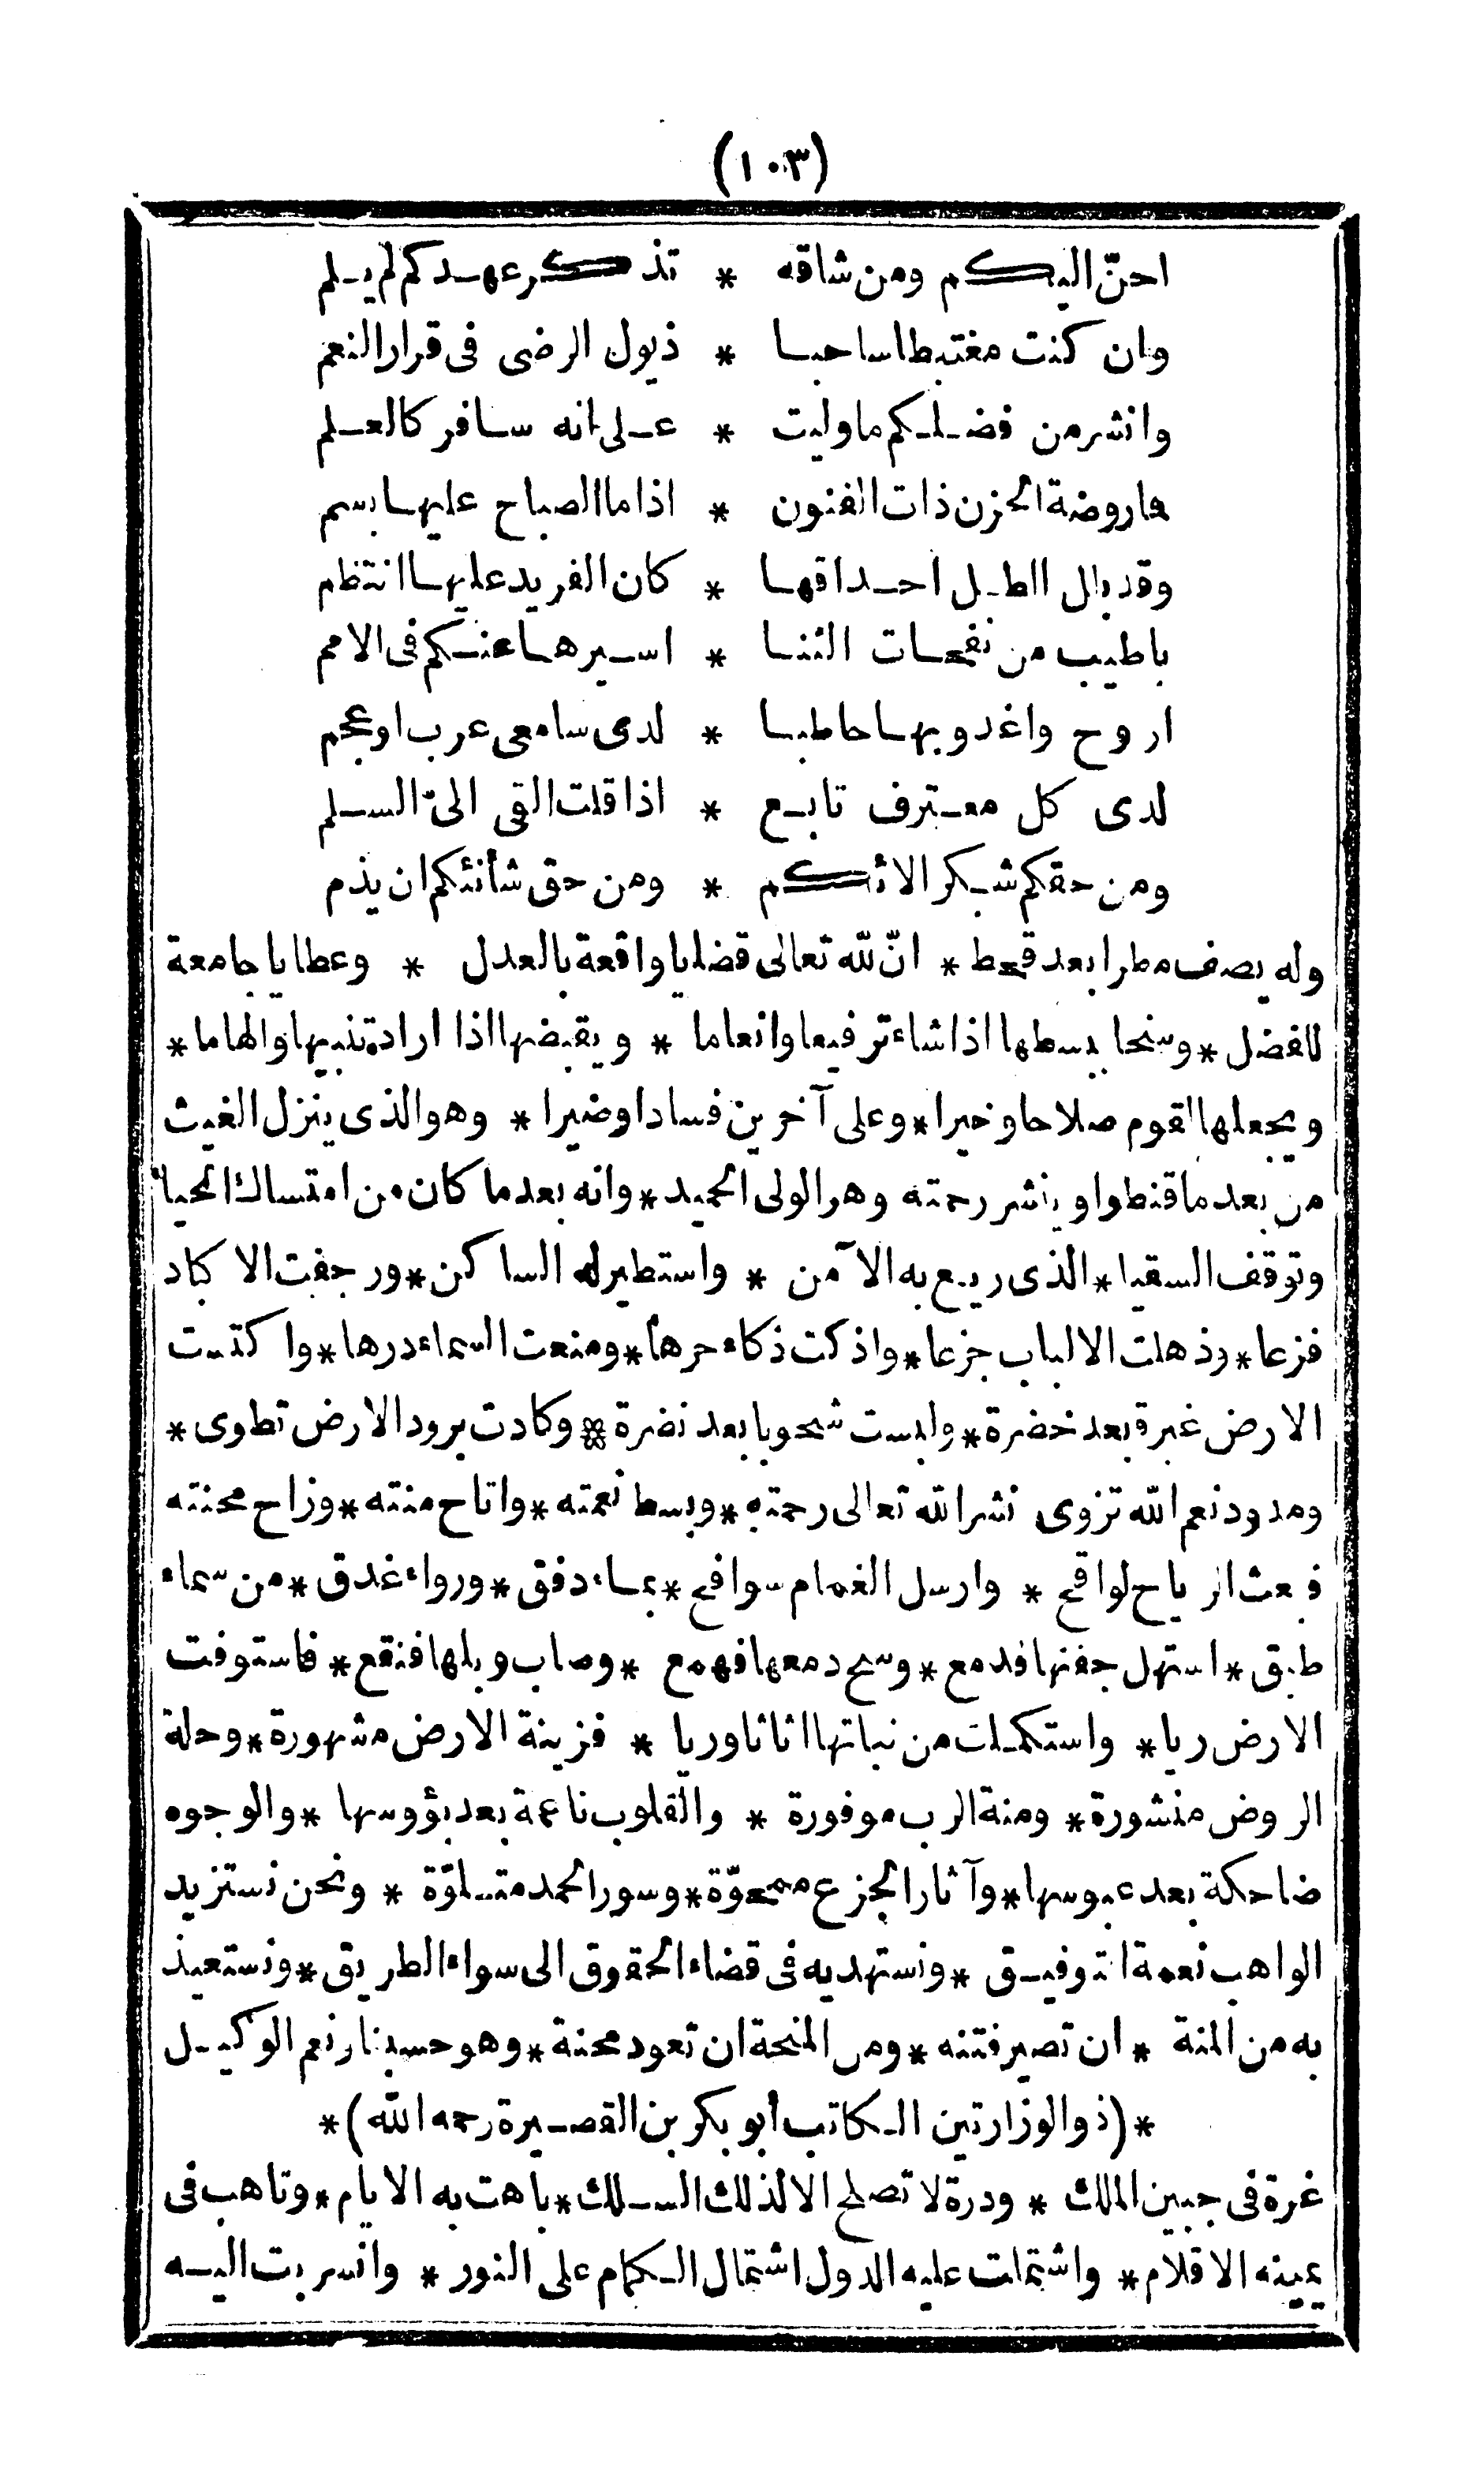 (١٠٣)
احنّ اليكم ومن شاقه * تذكر عهدكم لم يلم
وان كنت مغتبطا ساحبا * ذيول الرضى فى قرار النعم
وانشر من فضلكم ما وليت * على انه سافر كالعلم
فما روضة الحزن ذات الفنون * اذا ما الصباح عليها بسم
وقد بلل الطل احداقها * كان الفريد عليها انتظم
باطيب من نفحات الثنا * اسيرها عنكم فى الامم
اروح واغدو بها خاطبا * لدى سامعى عرب او عجم
لدى كل معترف تابع * اذا قلت القى الىّ السلم
ومن حقكم شكر الائكم * ومن حق شأنئكم ان يذم
وله يصف مطرا بعد قحط * انّ لله تعالى قضايا واقعة بالعدل * وعطايا جامعة
للفضل * ومنحا يبسطها اذا شاء ترفيعا وانعاما * ويقبضها اذا اراد تنبيها والهاما *
ويجعلها لقوم صلاحا وخيرا * وعلى آخرين فسادا وضيرا * وهو الذى ينزل الغيث
من بعد ما قنطوا وينشر رحمته وهو الولى الحميد * وانه بعد ما كان من امتساك الحيا
وتوقف السقيا * الذى ريع به الآمن * واستطير له الساكن * ورجفت الاكباد
فزعا * وذهلت الالباب جزعا * واذكت ذكاء حرها * ومنعت السماء درها * واكتست
الارض غبرة بعد خضرة * ولبست شحوبا بعد نضرة * وكادت برود الارض تطوى *
ومدود نعم الله تزوى نشر الله تعالى رحمته * وبسط نعمته * واتاح منته * وزاح محنته
فبعث الرياح لواقح * وارسل الغمام سوافح * بماء دفق * ورواء غدق * من سماء
طبق * استهل جفنها فدمع * وسح دمعها فهمع * وصاب وبلها فنقع * فاستوفت
الارض ريا * واستكملت من نباتها اثاثا وريا * فزينة الارض مشهورة * وحلة
الروض منشورة * ومنة الرب موفورة * والقلوب ناعمة بعد بؤوسها * والوجوه
ضاحكة بعد عبوسها * وآثار الجزع ممحوّة * وسور الحمد متلوّة * ونحن نستزيد
الواهب نعمة التوفيق * ونستهديه فى قضاء الحقوق الى سواء الطريق * ونستعيذ
به من المنة * ان تصير فتنه * ومن المنحة ان تعود محنة * وهو حسبنا ونعم الوكيل
* (ذو الوزارتين الكاتب أبو بكر بن القصيرة رحمه الله) *
غرة فى جبين الملك * ودرة لا تصلح الا لذلك السلك * باهت به الايام * وتاهب فى
يمينه الاقلام * واشتملت عليه الدول اشتمال الكمام على النور * وانسربت اليه